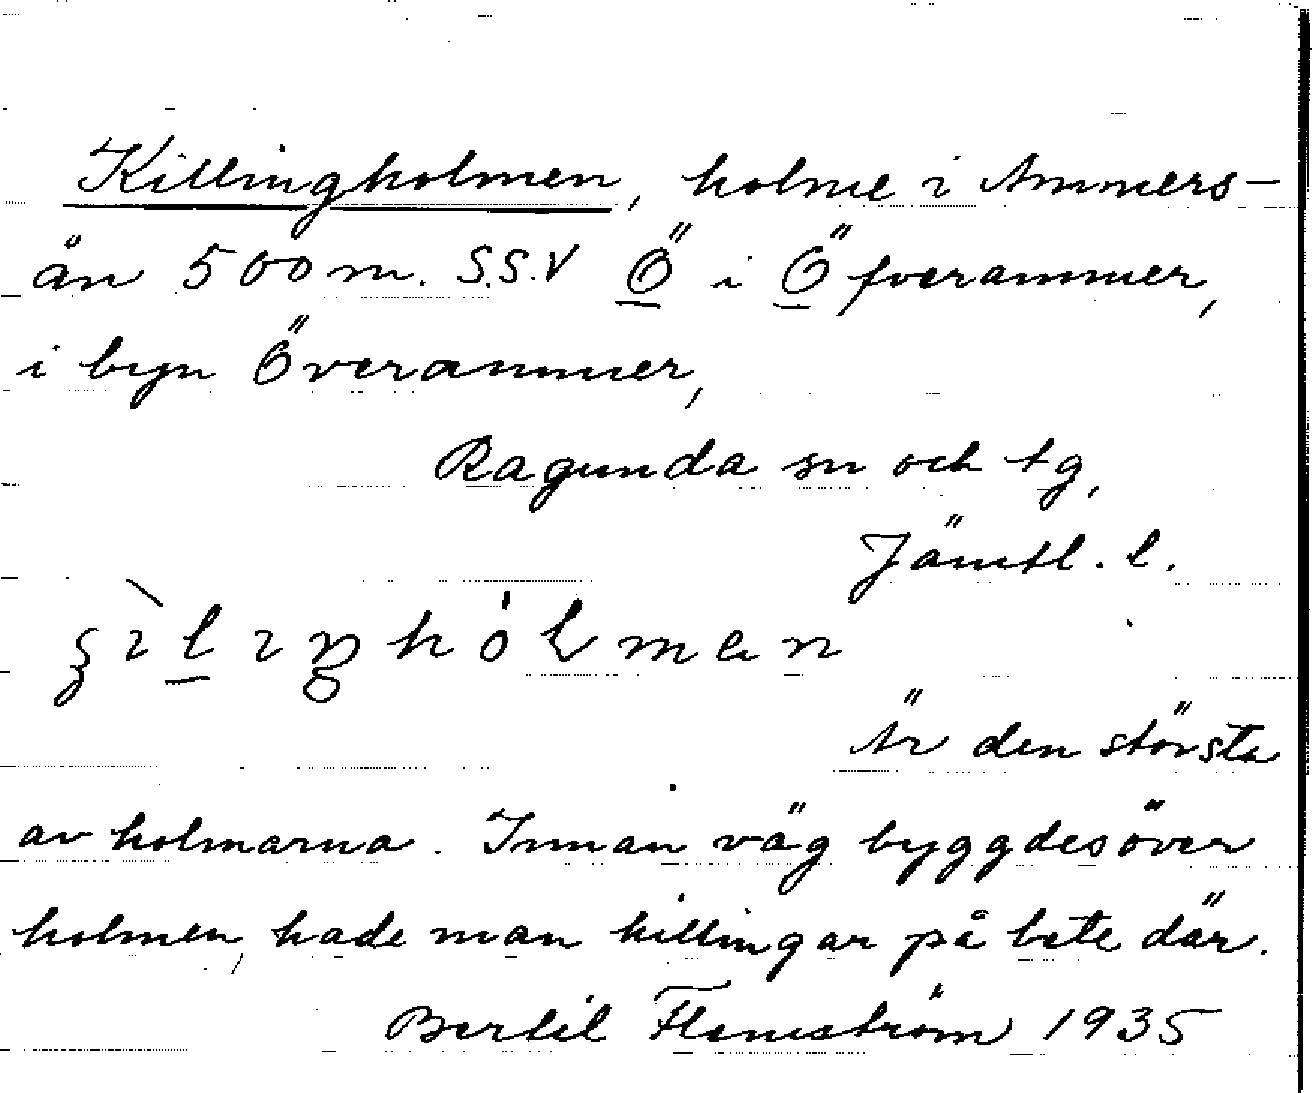 Killingholmen, holme i Ammers-
ån 500 m. S.S.V Ö i Öfverammer,
i byn Överammer,
Ragunda sn och tg,
Jämtl. l.
Är den största
av holmarna. Innan väg byggdes över
holmen, hade man killingar på bete där.
Bertil Flemström 1935